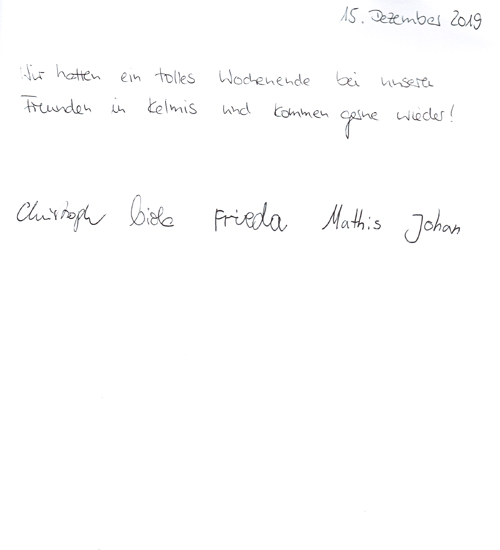 15. Dezember 2019
Wir hatten ein tolles Wochenende bei unseren
Freunden in Kelmis und kommen gerne wieder!
Christoph Frieda Mathis Johan